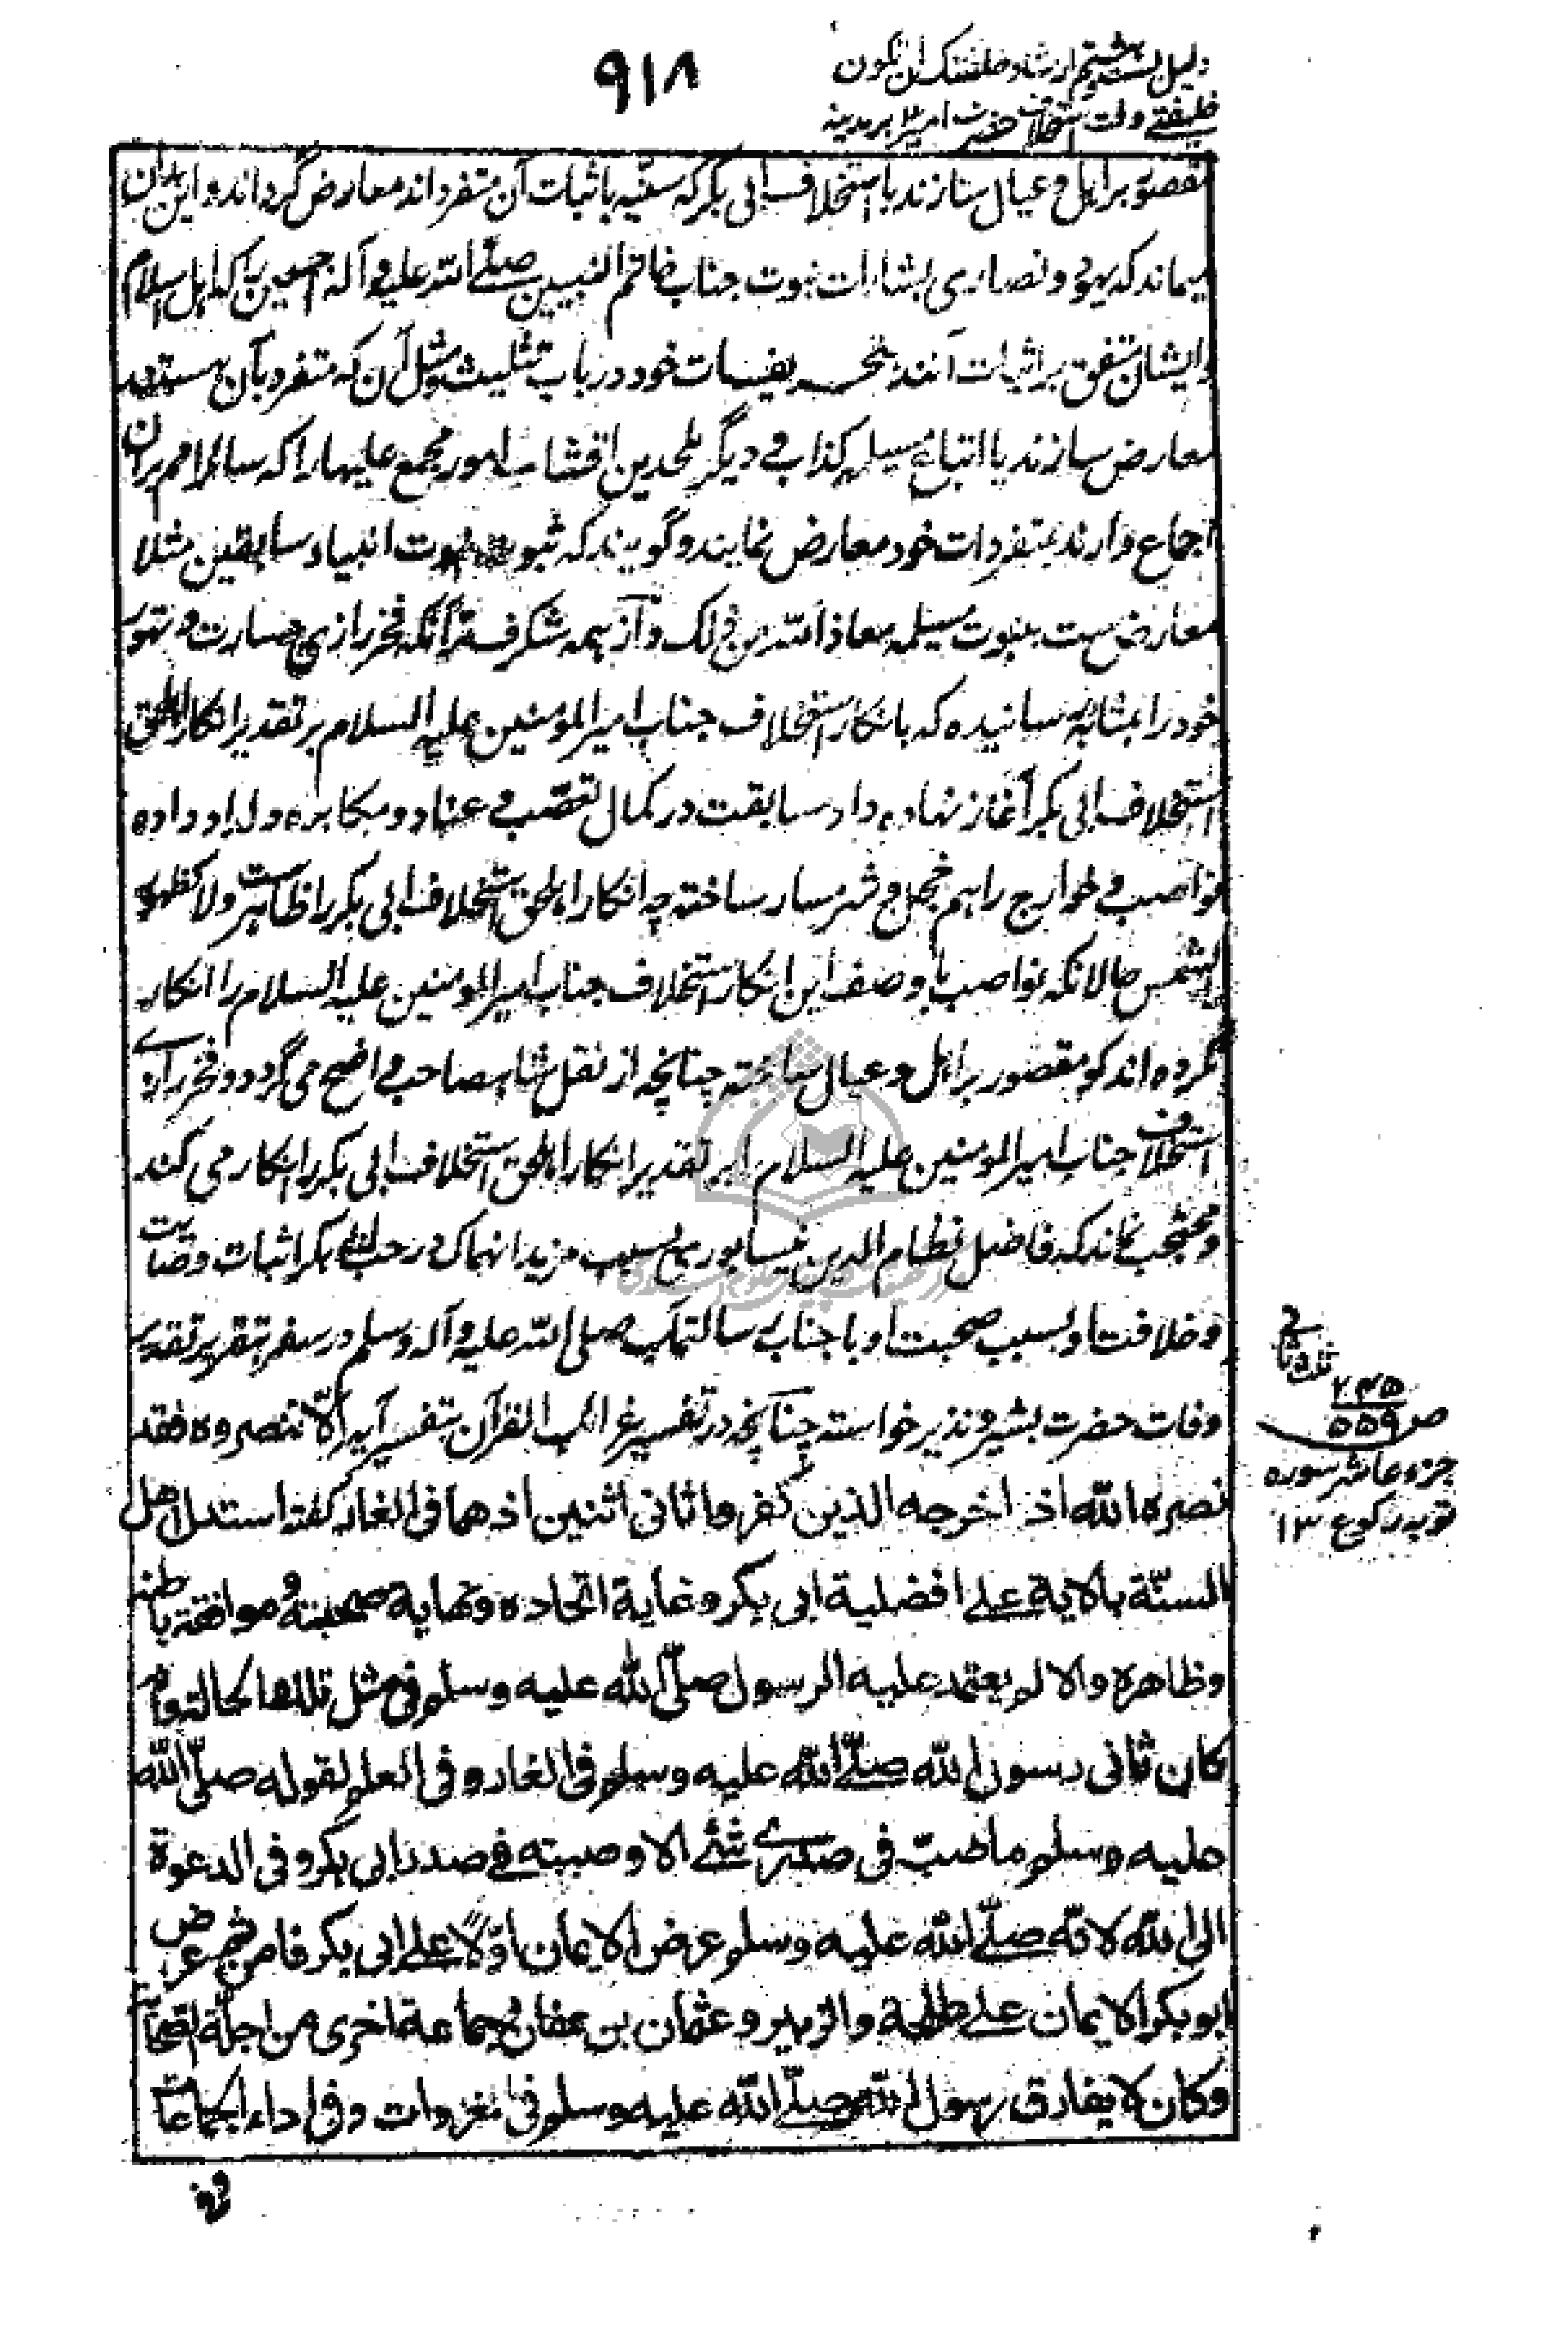 ۹۱۸
دلیل بست و هشتم ارشاد خلفتک ان تکون
خلیفتے وقت استخلاف حضرت امیر بر مدینه
مقصور بر اہل و عیال سازند با استخلاف ابی بکر که سنّیه باثبات آن متفرد اند معارض گردانند و این بدان
میماند که یهود و نصاری بشارات نبوت جناب خاتم النبیین صلے اللہ علیه و آله اجمعین را که اہل اسلام
و ایشان متفق بر اثبات آنند بتحریفات خود در باب تثلیث و مثل آن که متفرد بآن ہستند
معارض سازند یا اتباع مسیلمه کذاب و دیگر ملحدین اقشاب امور مجمع علیها را که سائر امم بران
اجماع دارند بمتفردات خود معارض نمایند و گویند که ثبوت نبوت انبیاء سابقین مثلا
معارض ست بنبوت مسیلمه معاذ اللہ من ذلک و از ہمه شگرف تر آنکه فخر رازی جسارت و تہور
خود را بمثابه رسانیده که بانکار استخلاف جناب امیر المؤمنین علیه السلام بر تقدیر انکار اہل حق
استخلاف ابی بکر آغاز نهاده داد سابقت در کمال تعصّب و عناد و مکابره و لداد داده
نواصب و خوارج را ہم خجل و شرمسار ساخته چه انکار اہل حق استخلاف ابی بکر را ظاہر ست و لا کظہور
الشمس حالانکه نواصب با وصف این انکار استخلاف جناب امیر المومنین علیه السلام را انکار
نکرده اند گو مقصور بر اہل و عیال ساخته چنانچه از نقل شاہصاحب واضح می گردد و فخر رازے
استخلاف جناب امیر المومنین علیه السلام را بر تقدیر انکار اہل حق استخلاف ابی بکر را انکار می کند
و محتجب نماند که فاضل نظام الدین نیسابوری بسبب مزید انهماک در حب ابی بکر اثبات وصایت
و خلافت او بسبب صحبت او با جناب رسالتمآب صلی اللہ علیه و آله وسلم در سفر بتقریر تقدیر
وفات حضرت بشیر و نذیر خواسته چنانچه در تفسیر غرائب القرآن بتفسیر آیه الّا تنصروه فقد
نصره الله اذ اخرجه الذین کفروا ثانی اثنین اذ هما فی الغار گفته استدل اهل
السنّة بالایة علے افضلیة ابی بکر و غایة اتحاده و نهایة صحبته و موافقة باطنه
و ظاهره والا لم یعتمد علیه الرسول صلّی الله علیه وسلم فی مثل تلک الحالة و انه
کان ثانی رسول الله صلّے الله علیه وسلم فی الغار و فی العلم لقوله صلّی الله
علیه وسلم ما صبّ فی صدرے شئے الا و صببته فے صدر ابی بکر و فی الدعوة
الی الله لانّه صلّے الله علیه وسلم عرض الایمان اوّلا علے ابی بکر فامن ثم عرض
ابو بکر الایمان علے طلحة والزبیر و عثمان بن عفان و جماعة اخری من اجلّة الصحابة
وکان لا یفارق رسول الله صلّے الله علیه وسلم فی الغزوات و فی اداء الجماعات
و فے
ص ۵۵۹
جزء عاشر سوره
توبه رکوع ۱۳